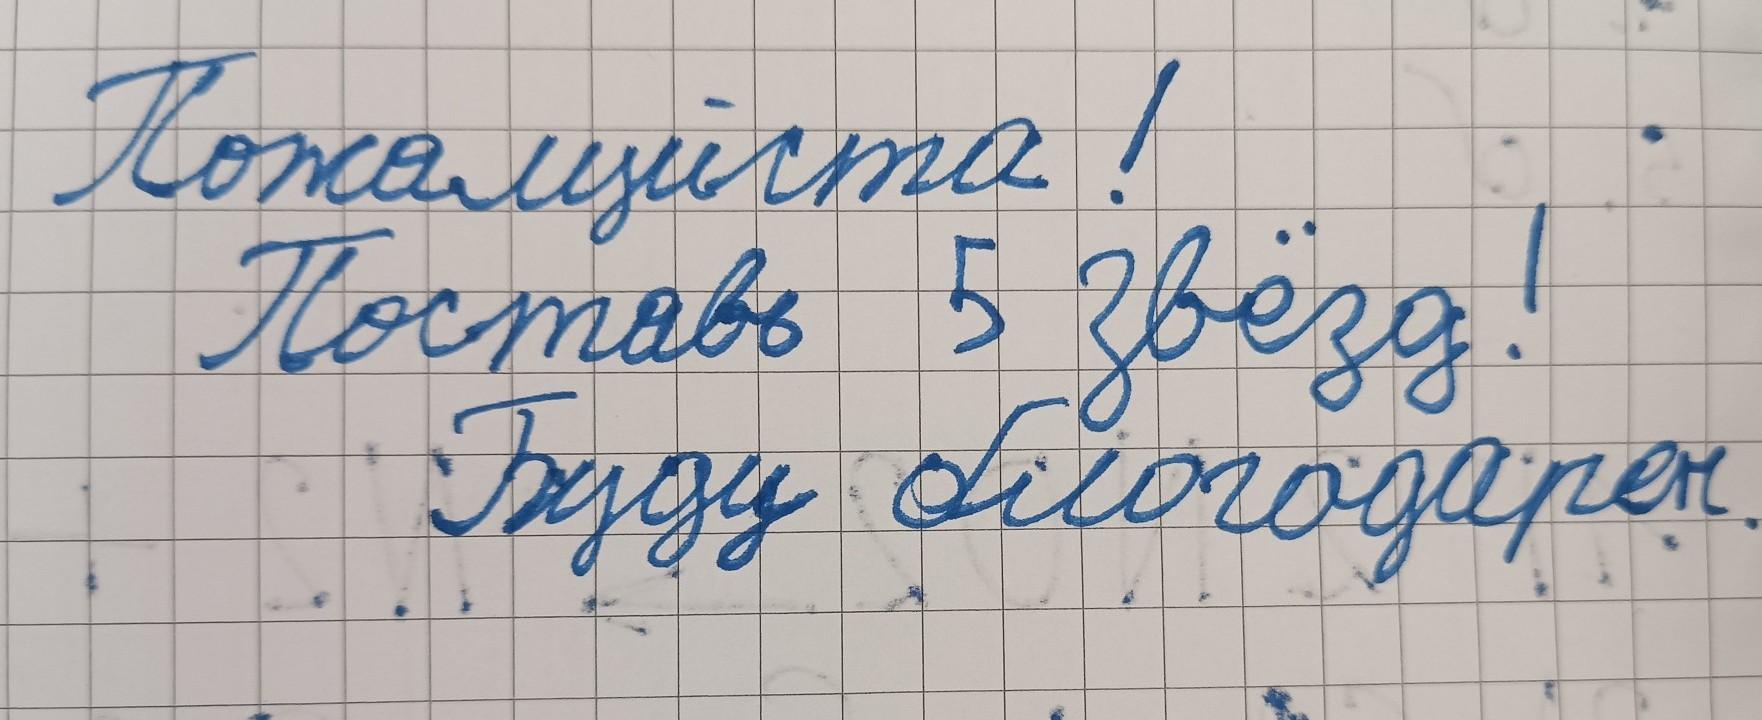 Пожалуйста!
Поставь 5 звёзд!
Буду благодарен.